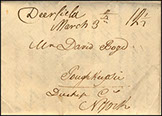 Deerfield
March 3d 12½
Mr David Boyd
Poughkeepsie
Dutchess Co
N York